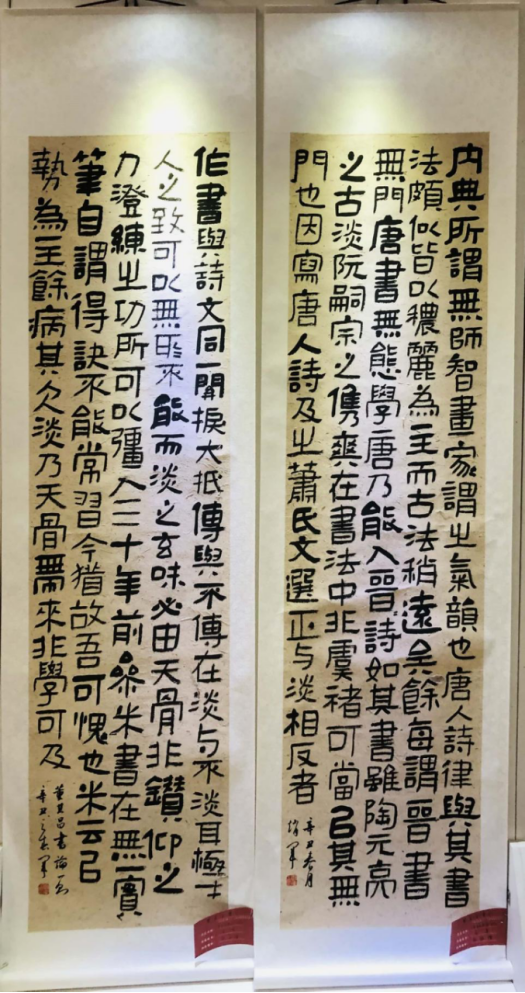 內典所謂無師智畫家謂之氣韻也唐人詩律與其書
法頗似皆以穠麗為主而古法稍遠矣餘每謂晉書
無門唐書無態學唐乃能入晉詩如其書雖陶元亮
之古淡阮嗣宗之儁爽在書法中非虞褚可當以其無
門也因寫唐人詩及之蕭氏文選正与淡相反者
辛丑春月
作書與詩文同一關捩大抵傳與不傳在淡与不淡耳極才
人之致可以無所不能而淡之玄味必由天骨非鑽仰之
力澄練之功所可以彊入三十年前參米書在無一實
筆自謂得訣不能常習今猶故吾可愧也米云以
勢為主餘病其欠淡乃天骨帶來非學可及
董其昌書論一則
辛丑之春